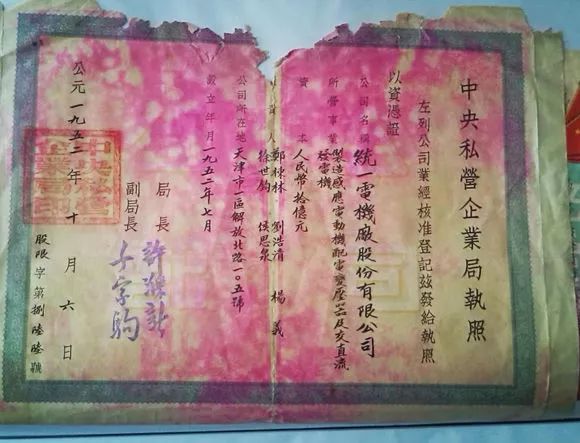 中央私營企業局執照
左列公司業經核准登記茲發給執照
以資憑證
公司名稱 統一電機廠股份有限公司
所營事業 製造感應電動機配電變壓器及交直流
發電機
資本 人民幣拾億元
人 鄭棟林 劉浩清 楊義
徐世鈞 侯思泉
公司所在地 天津市一區解放北路一〇五號
設立年月 一九五二年七月
局長 許滌新
副局長 千家駒
公元一九五二年十月六日
股限字第捌陸陸號